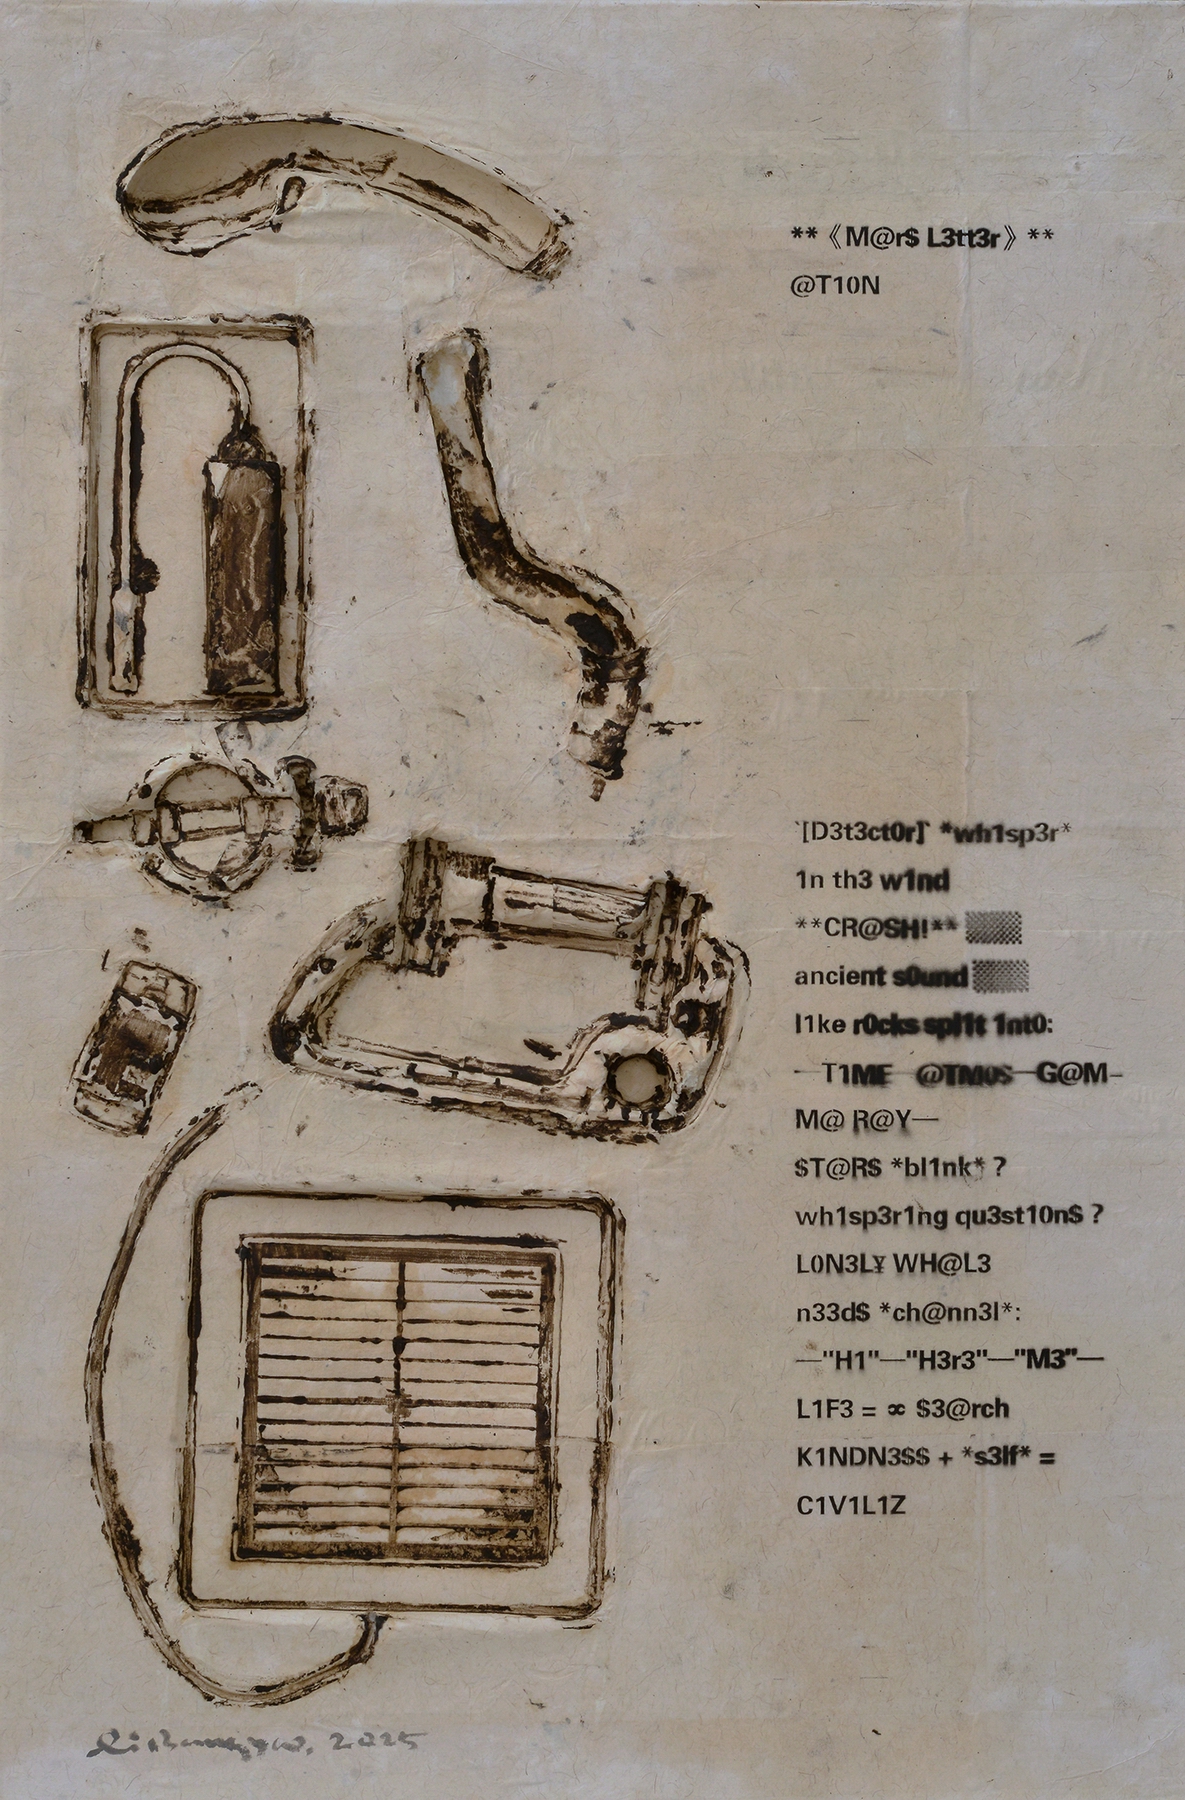 **《M@r$ L3tt3r》**
@T10N
`[D3t3ct0r]` *wh1sp3r*
1n th3 w1nd
**CR@SH!** ▒▒
ancient s0und ▒▒
l1ke r0cks spl1t 1nt0:
—T1ME—@TM0S—G@M—
M@ R@Y—
$T@R$ *bl1nk* ?
wh1sp3r1ng qu3st10n$ ?
L0N3L¥ WH@L3
n33d$ *ch@nn3l*:
—"H1"—"H3r3"—"M3"—
L1F3 = ∝ $3@rch
K1NDN3$$ + *s3lf* =
C1V1L1Z
2025